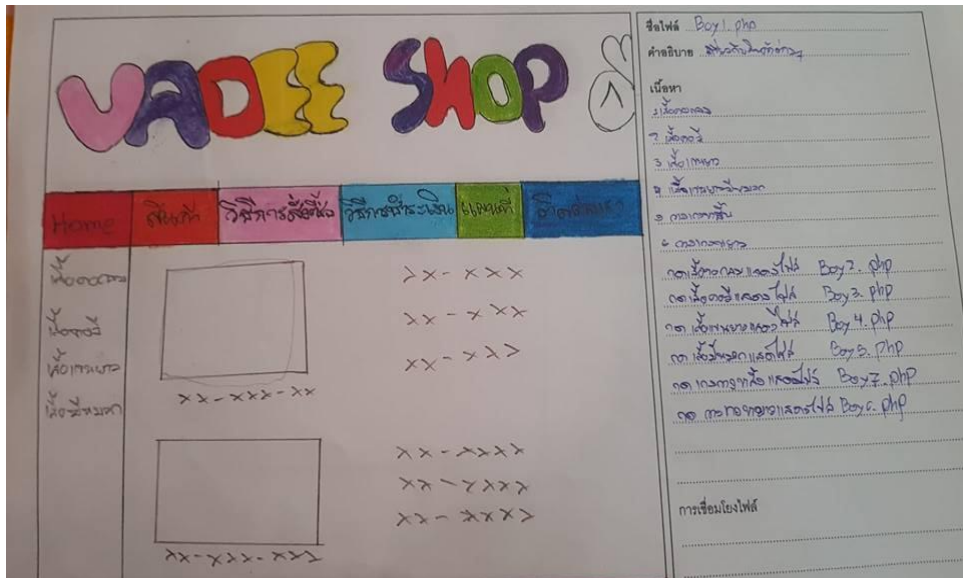 VADEE SHOP
Home
สินค้า
วิธีการสั่งซื้อ
วิธีการชำระเงิน
แผนที่
เสื้อคอกลม
เสื้อคอวี
เสื้อแขนยาว
เสื้อมีหมวก
xx-xxx
xx-xxx
xx-xxx
xx-xxx-xx
xx-xxxx
xx-xxxx
xx-xxxx
xx-xxx-xxx
ชื่อไฟล์ Boy1.php
คำอธิบาย
เนื้อหา
1 เสื้อคอกลม
2 เสื้อคอวี
3 เสื้อแขนยาว
4 เสื้อแขนยาวมีหมวก
5 กางเกงขาสั้น
6 กางเกงขายาว
กดเสื้อคอกลมแสดงไฟล์ Boy2.php
กดเสื้อคอวีแสดงไฟล์ Boy3.php
กดเสื้อแขนยาวแสดงไฟล์ Boy4.php
กดเสื้อมีหมวกแสดงไฟล์ Boy5.php
Boy7.php
Boy6.php
การเชื่อมโยงไฟล์